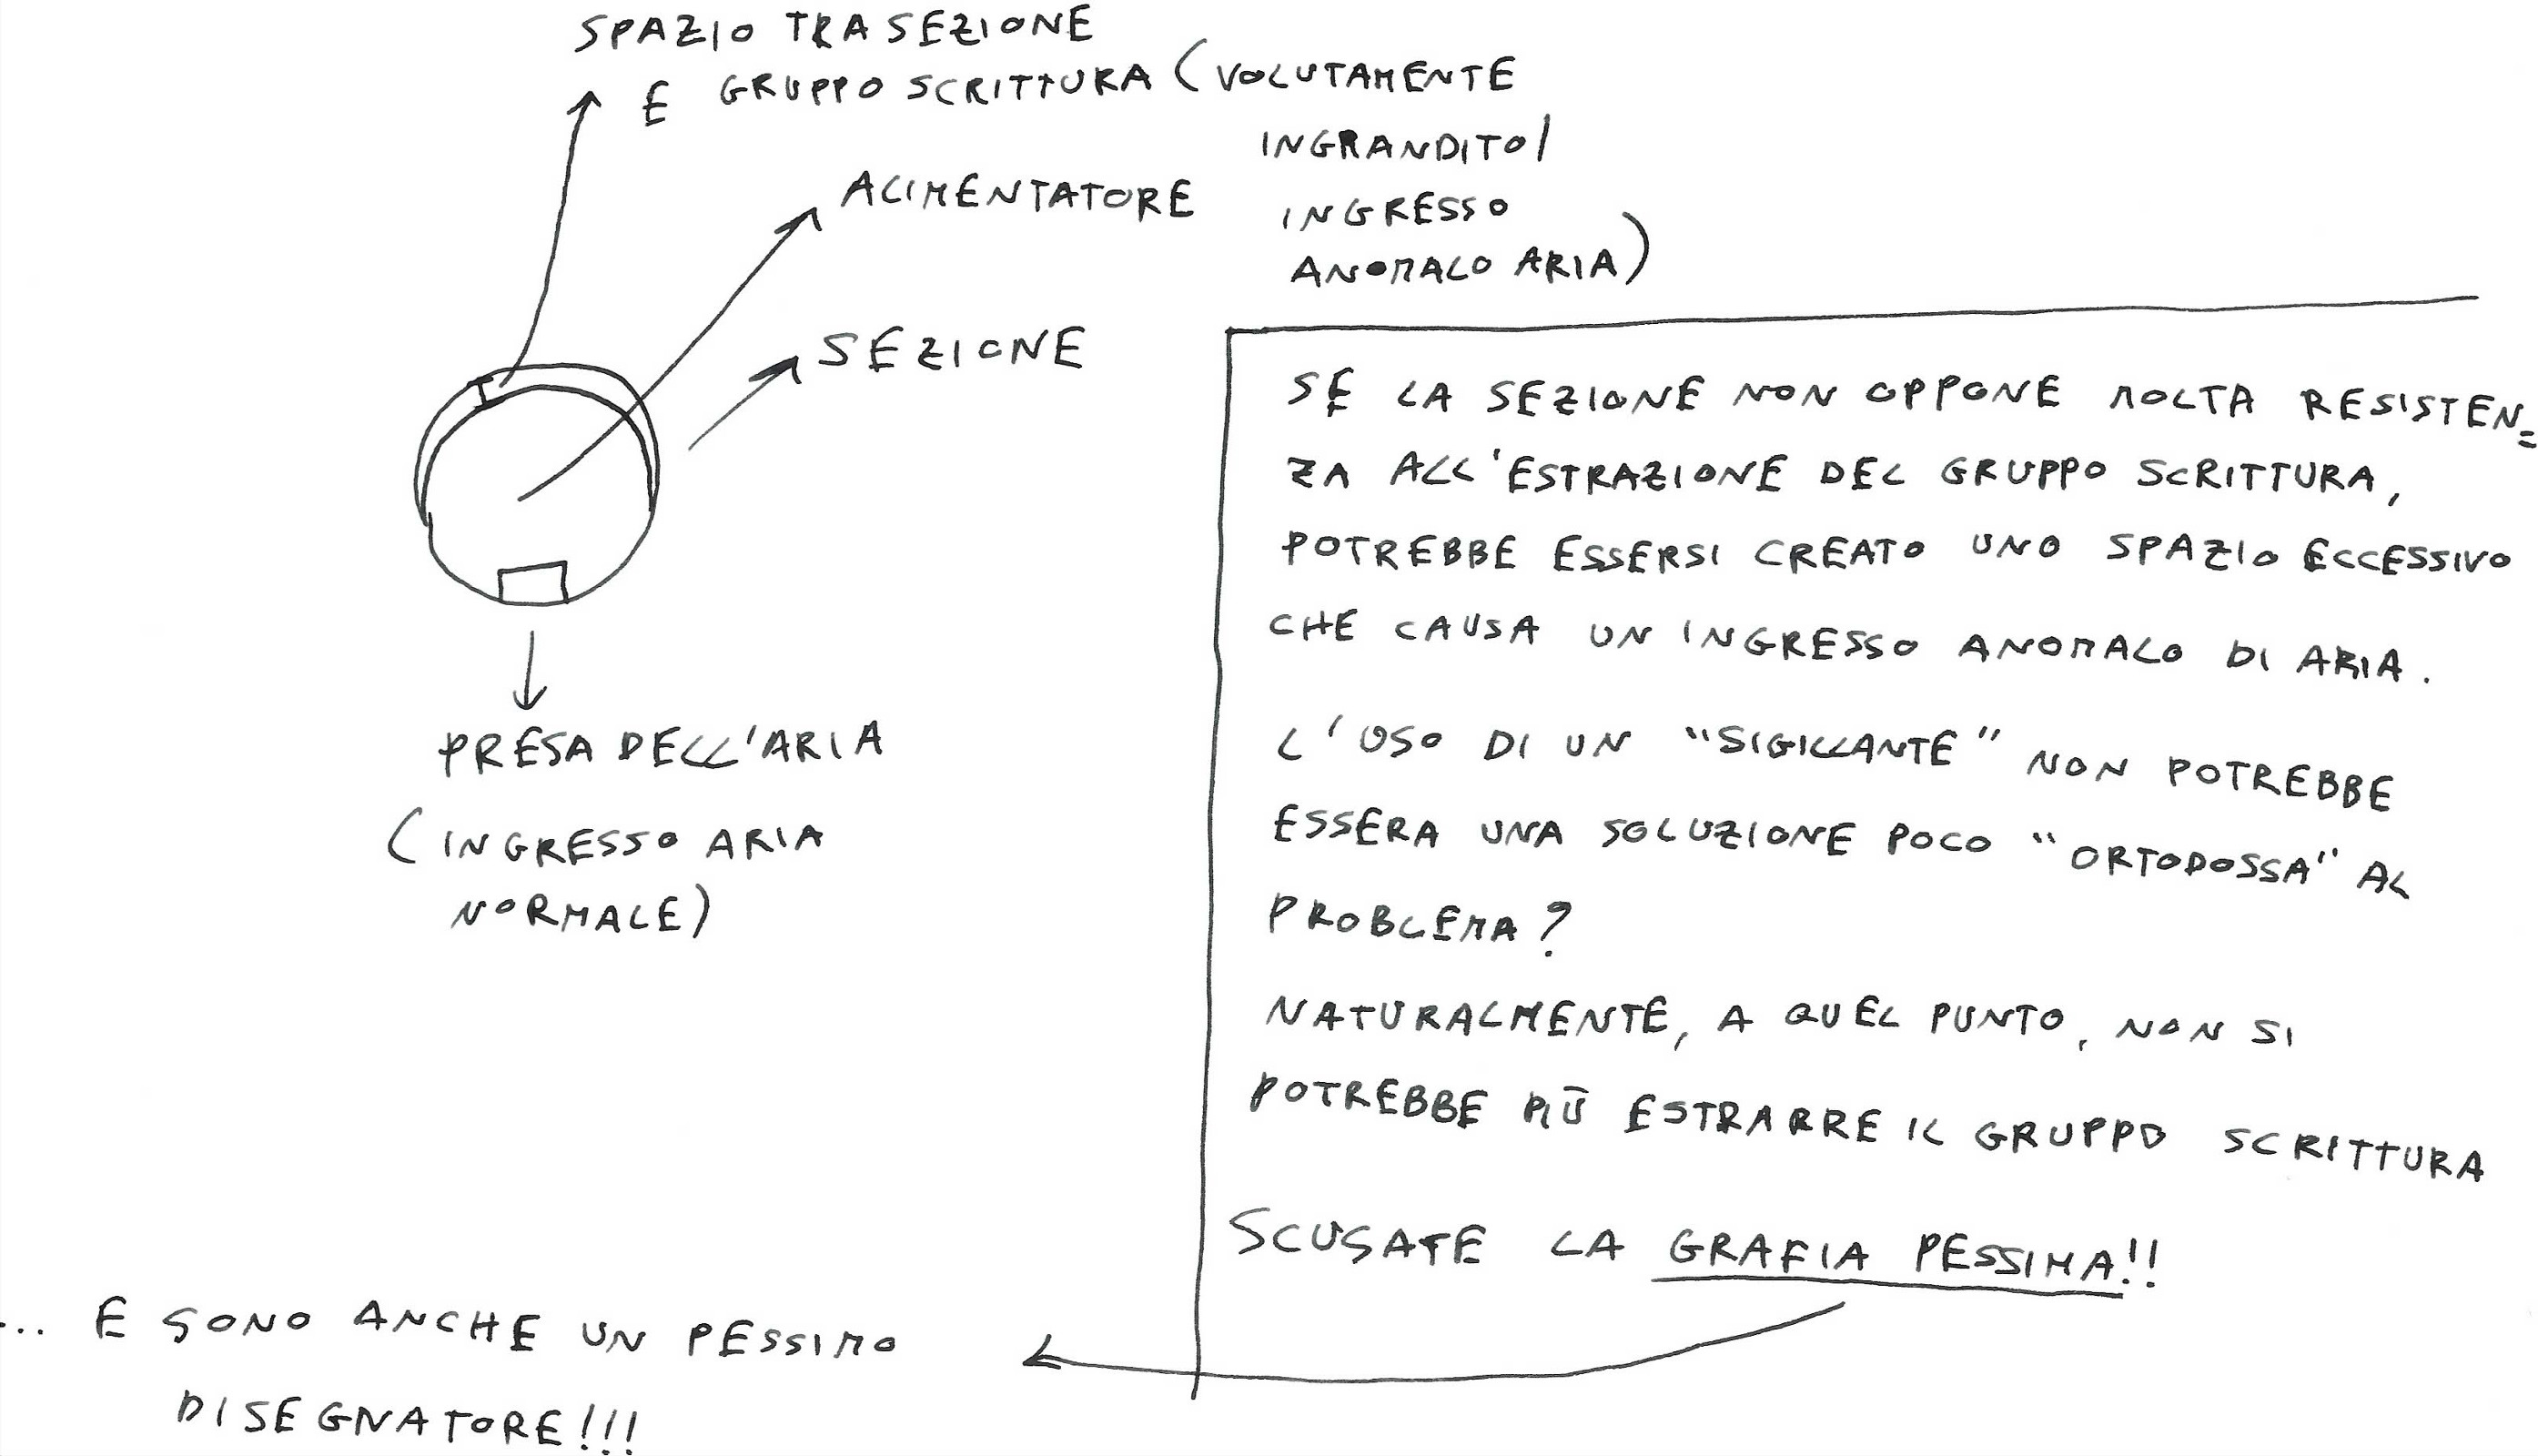 SPAZIO TRA SEZIONE
E GRUPPO SCRITTURA (VOLUTAMENTE
INGRANDITO/
INGRESSO
ANOMALO ARIA)
ALIMENTATORE
SEZIONE
PRESA DELL'ARIA
(INGRESSO ARIA
NORMALE)
SE LA SEZIONE NON OPPONE MOLTA RESISTEN=
ZA ALL'ESTRAZIONE DEL GRUPPO SCRITTURA,
POTREBBE ESSERSI CREATO UNO SPAZIO ECCESSIVO
CHE CAUSA UN INGRESSO ANOMALO DI ARIA.
L'USO DI UN "SIGILLANTE" NON POTREBBE
ESSERA UNA SOLUZIONE POCO "ORTODOSSA" AL
PROBLEMA?
NATURALMENTE, A QUEL PUNTO, NON SI
POTREBBE PIÙ ESTRARRE IL GRUPPO SCRITTURA
SCUSATE LA GRAFIA PESSIMA!!
... E SONO ANCHE UN PESSIMO
DISEGNATORE!!!